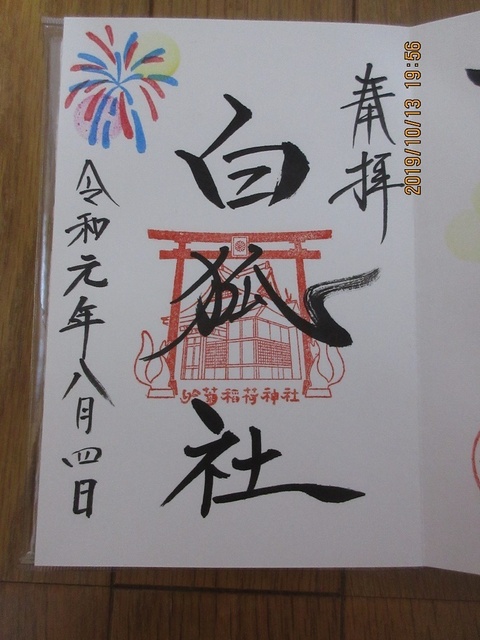 奉拝
白狐社
鈴菊稲荷神社
令和元年八月四日
2019/10/13 19:56